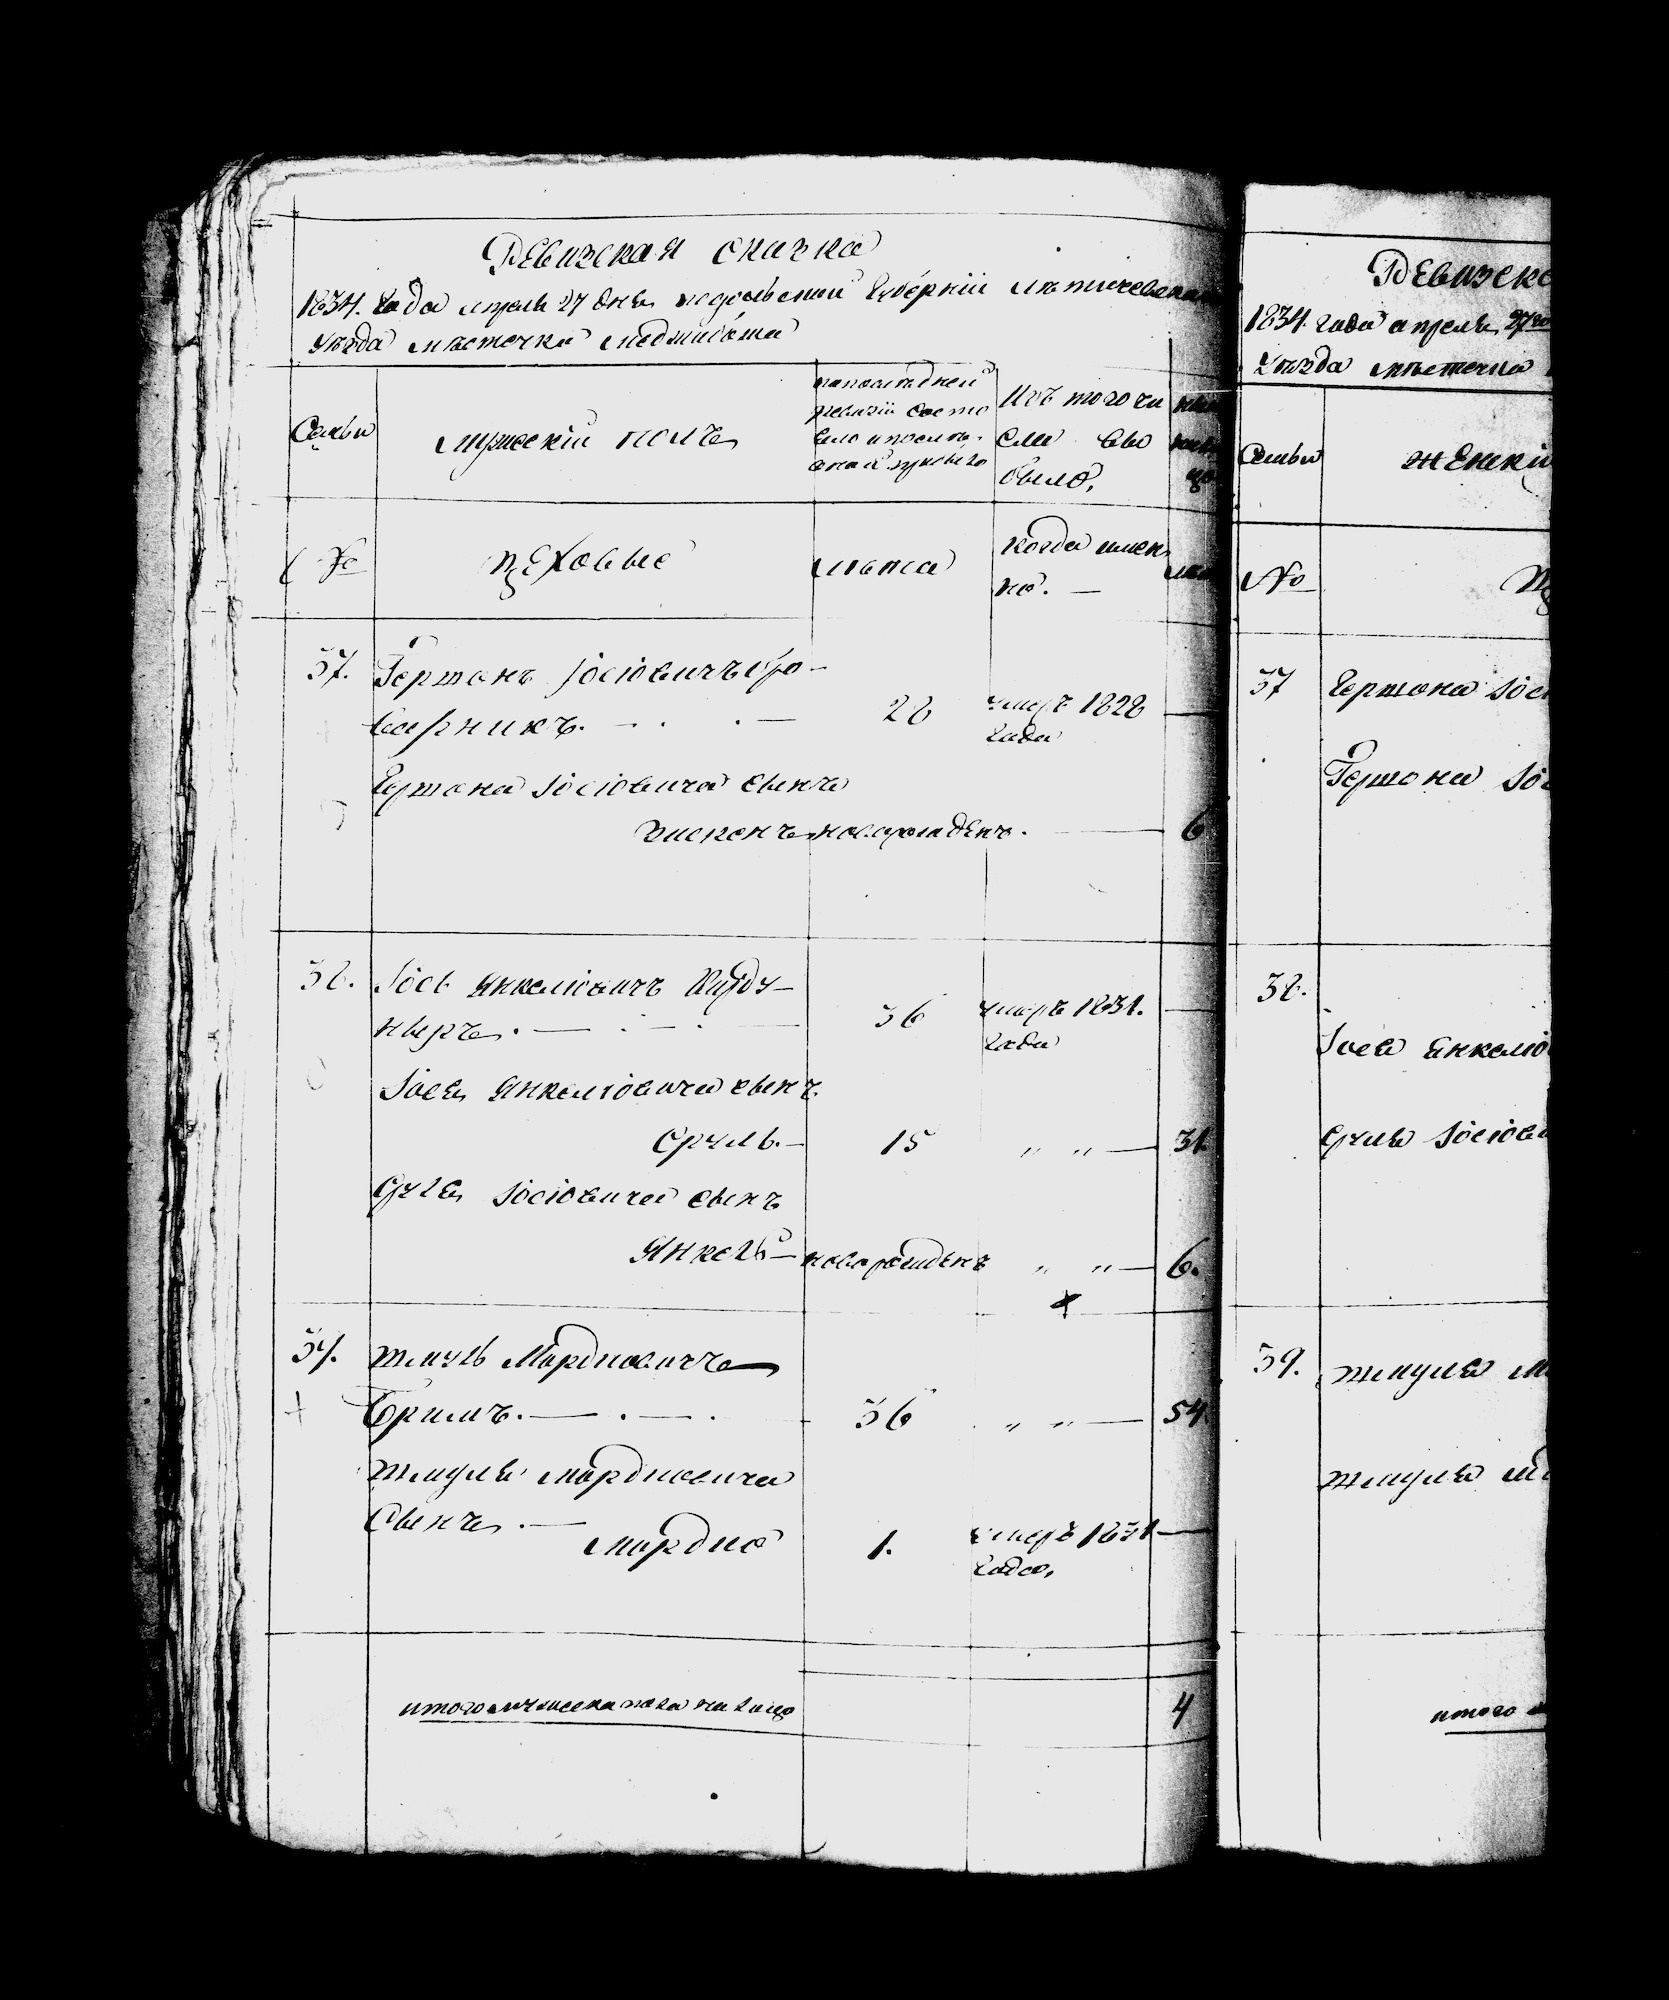 Ревизская сказка
1834. года апреля 27 дня подольской Губерніи Летичевскаго
уезда местечка Меджибожа
Семьи
мужескій полъ
по последней
ревизіи состо
яло и после
оной прибыло
Изъ того чи
сла выбыло
ныне
на
лицо
№
цеховые
лета
когда имен
но. —
лета
37. Гершонъ Іосіовичъ
28 умеръ 1828 —
года
Гершона Іосіовича сынъ
новорожденъ. — 6
38. Іось Янкеліовичъ
36 умеръ 1831. —
года
Іося Янкеліовича сынъ
Сруль. — 15 " " — 31.
Сруля Іосіовича сынъ
Янкель — новорожденъ " " — 6.
39. Шмуль Мордковичъ
36 " " — 54.
Шмуля Мордковича
Сынъ. —
Мордко 1. умеръ 1831 —
года,
итого мужеска пола на лицо 4
Ревизска
1834 года апреля 27
Уезда местечка
Семьи
женскій
№
37 Гершона Іосі
Гершона Іос
38.
Іося Янкеліо
Сруля Іосіови
39. Шмуля М
Шмуля М
итого